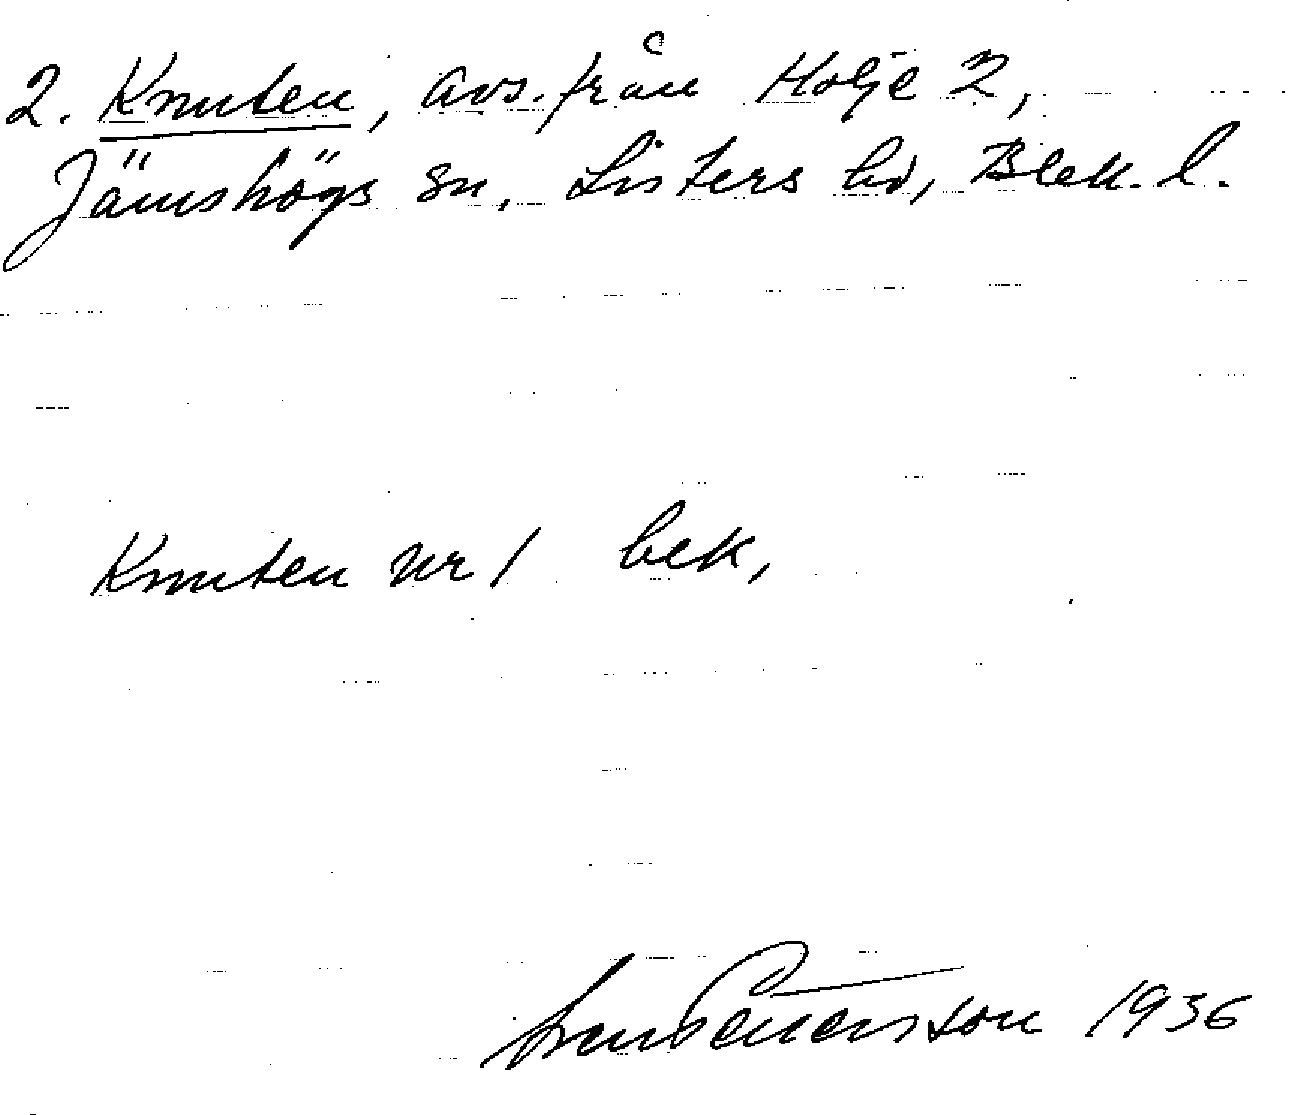 2. Knuten, avs. från Holje 2,
Jämshögs sn, Listers hd, Blek. l.
Knuten nr 1 bek,
Petersson 1936